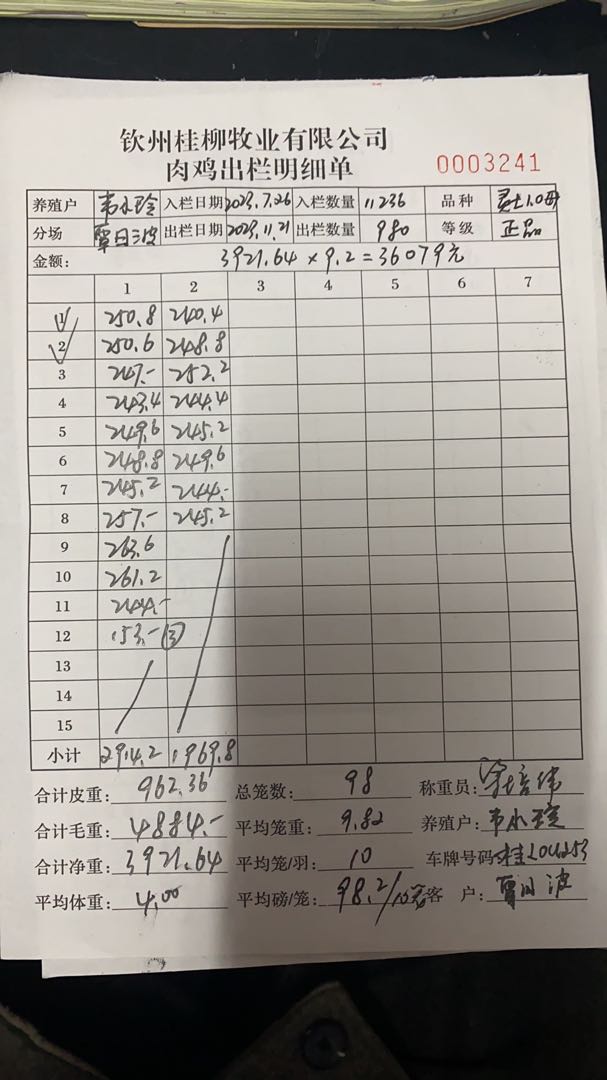 钦州桂柳牧业有限公司
肉鸡出栏明细单 0003241
养殖户 韦水玲 入栏日期 2023.7.26 入栏数量 11236 品种
分场 覃日波 出栏日期 2023.11.21 出栏数量 980 等级 正品
金额: 3921.64 × 9.2 = 36079元
1 2 3 4 5 6 7
1 250.8 240.4
2 250.6 248.8
3 247.- 252.2
4 243.4 244.4
5 249.6 245.2
6 248.8 249.6
7 245.2 244.-
8 257.- 245.2
9 263.6
10 261.2
11 244.-
12 153.- ③
13
14
15
小计 2914.2 1969.8
合计皮重: 962.36 总笼数: 98 称重员:
合计毛重: 4884.- 平均笼重: 9.82 养殖户:
合计净重: 3921.64 平均笼/羽: 10 车牌号码
平均体重: 4.00 平均磅/笼: 98.2/ 客 户: 覃日波